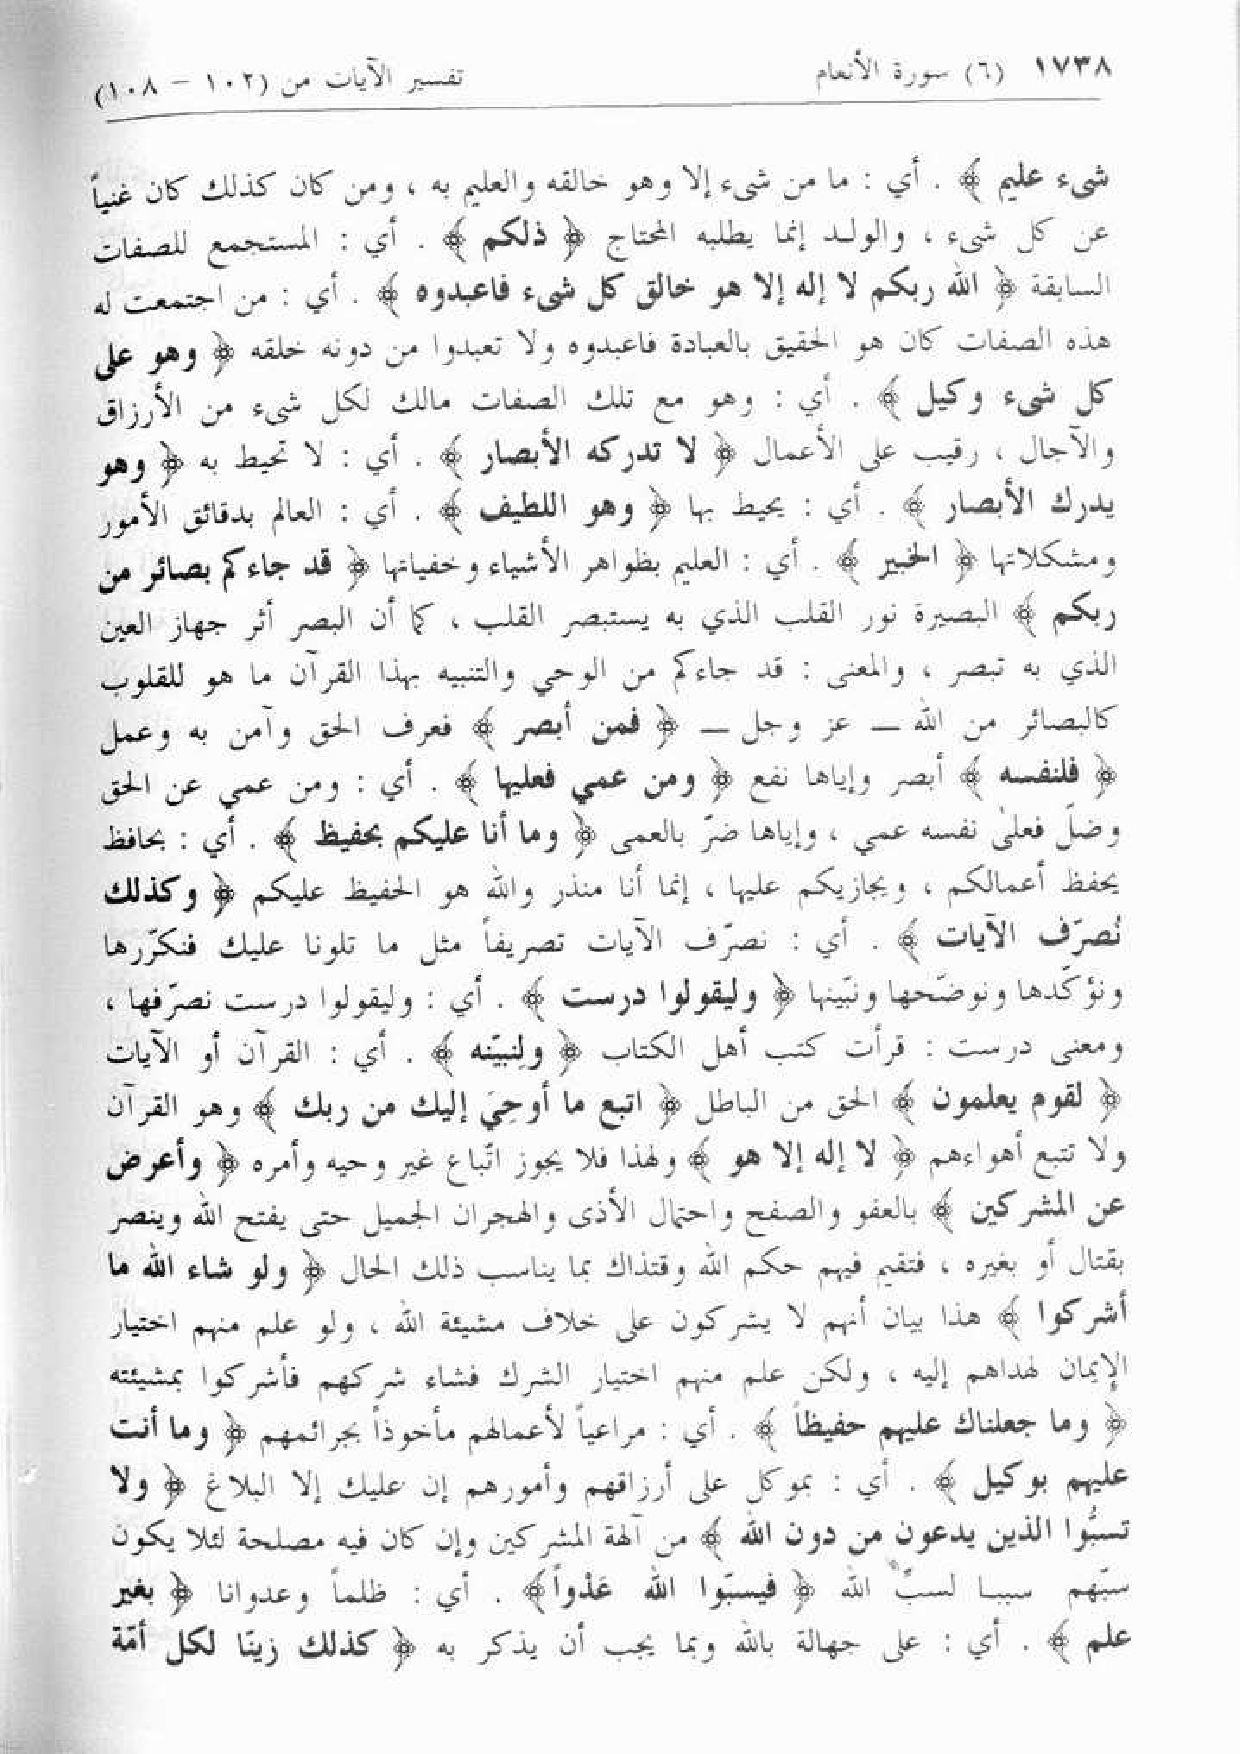 ١٧٣٨ (٦) سورة الأنعام تفسير الآيات من (١٠٢ – ١٠٨)
شىء عليم ﴾ . أي : ما من شىء إلا وهو خالقه والعليم به ، ومن كان كذلك كان غنياً
عن كل شىء ، والولد إنما يطلبه المحتاج ﴿ ذلكم ﴾ . أي : المستجمع للصفات
السابقة ﴿ الله ربكم لا إله إلا هو خالق كل شىء فاعبدوه ﴾ . أي : من اجتمعت له
هذه الصفات كان هو الحقيق بالعبادة فاعبدوه ولا تعبدوا من دونه خلقه ﴿ وهو على
كل شىء وكيل ﴾ . أي : وهو مع تلك الصفات مالك لكل شىء من الأرزاق
والآجال ، رقيب على الأعمال ﴿ لا تدركه الأبصار ﴾ . أي : لا تحيط به ﴿ وهو
يدرك الأبصار ﴾ . أي : يحيط بها ﴿ وهو اللطيف ﴾ . أي : العالم بدقائق الأمور
ومشكلاتها ﴿ الخبير ﴾ . أي : العليم بظواهر الأشياء وخفياتها ﴿ قد جاءكم بصائر من
ربكم ﴾ البصيرة نور القلب الذي به يستبصر القلب ، كما أن البصر أثر جهاز العين
الذي به تبصر ، والمعنى : قد جاءكم من الوحي والتنبيه بهذا القرآن ما هو للقلوب
كالبصائر من الله — عز وجل — ﴿ فمن أبصر ﴾ فعرف الحق وآمن به وعمل
﴿ فلنفسه ﴾ أبصر وإياها نفع ﴿ ومن عمي فعليها ﴾ . أي : ومن عمي عن الحق
وضلّ فعلىٰ نفسه عمي ، وإياها ضرّ بالعمى ﴿ وما أنا عليكم بحفيظ ﴾ . أي : بحافظ
يحفظ أعمالكم ، ويجازيكم عليها ، إنما أنا منذر والله هو الحفيظ عليكم ﴿ وكذلك
نُصرّف الآيات ﴾ . أي : نصرّف الآيات تصريفاً مثل ما تلونا عليك فنكرّرها
ونؤكّدها ونوضّحها ونبّينها ﴿ وليقولوا درست ﴾ . أي : وليقولوا درست نصرّفها ،
ومعنى درست : قرأت كتب أهل الكتاب ﴿ ولِنبيّنه ﴾ . أي : القرآن أو الآيات
﴿ لقوم يعلمون ﴾ الحق من الباطل ﴿ اتبع ما أوحِيَ إليك من ربك ﴾ وهو القرآن
ولا تتبع أهواءهم ﴿ لا إله إلا هو ﴾ ولهذا فلا يجوز اتّباع غير وحيه وأمره ﴿ وأعرض
عن المشركين ﴾ بالعفو والصفح واحتمال الأذى والهجران الجميل حتى يفتح الله وينصر
بقتال أو بغيره ، فتقيم فيهم حكم الله وقتذاك بما يناسب ذلك الحال ﴿ ولو شاء الله ما
أشركوا ﴾ هذا بيان أنهم لا يشركون على خلاف مشيئة الله ، ولو علم منهم اختيار
الإيمان لهداهم إليه ، ولكن علم منهم اختيار الشرك فشاء شركهم فأشركوا بمشيئته
﴿ وما جعلناك عليهم حفيظاً ﴾ . أي : مراعياً لأعمالهم مأخوذاً بجرائمهم ﴿ وما أنت
عليهم بوكيل ﴾ . أي : بموكل على أرزاقهم وأمورهم إن عليك إلا البلاغ ﴿ ولا
تسبُّوا الذين يدعون من دون الله ﴾ من آلهة المشركين وإن كان فيه مصلحة لئلا يكون
سبّهم سببا لسبّ الله ﴿ فيسبّوا الله عَدْواً﴾ . أي : ظلماً وعدوانا ﴿ بغير
علم ﴾ . أي : على جهالة بالله وبما يجب أن يذكر به ﴿ كذلك زينّا لكل أمّة